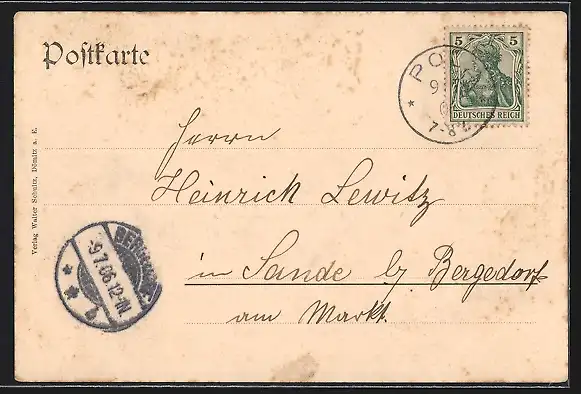 Postkarte
5 5
DEUTSCHES REICH
PO
9
7-8
Herrn
Heinrich Lewitz
in Sande b/ Bergedorf
am Markt.
Verlag Walter Schultz, Dömitz a. E.
BERGEDORF
-9.7.06.12-1N
b